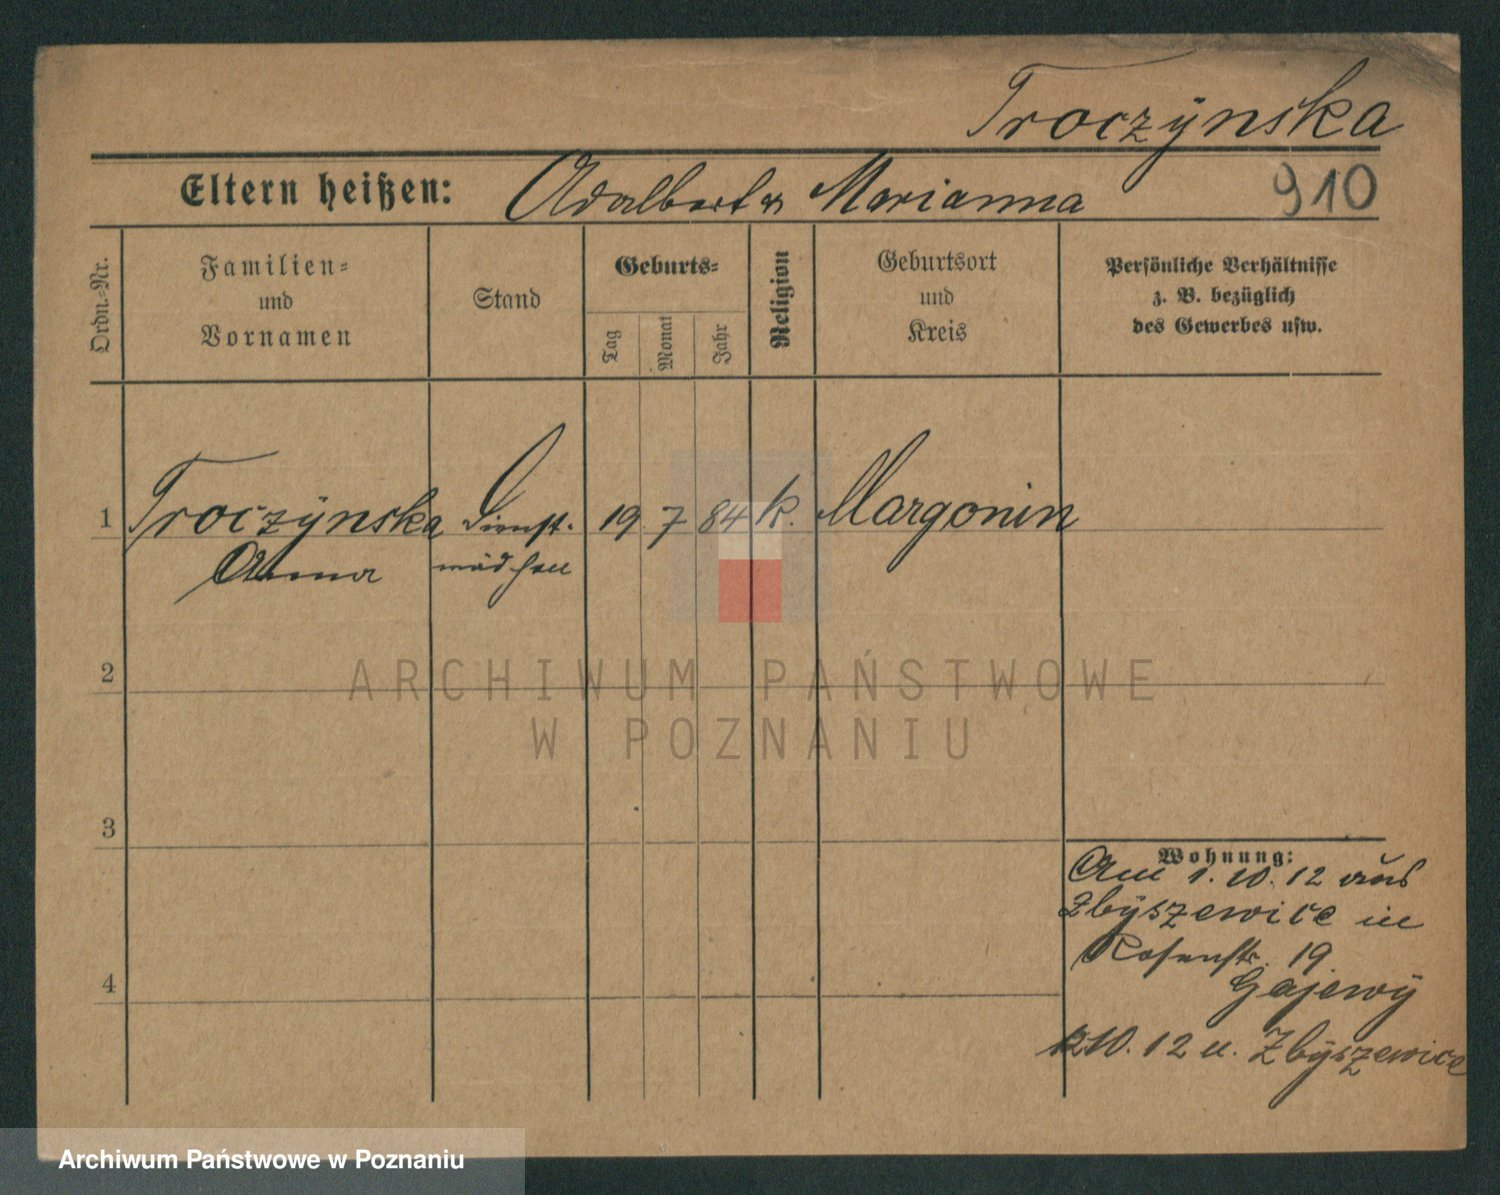 Troczÿnska
Eltern heißen: Adalbert u Marianna 910
Ordn.=Nr.
Familien=
und
Vornamen
Stand
Geburts=
Tag
Monat
Jahr
Religion
Geburtsort
und
Kreis
Persönliche Verhältnisse
z. B. bezüglich
des Gewerbes usw.
1 Troczÿnska Dienst- 19 7 84 k. Margonin
Anna mädchen
2
ARCHIWUM PAŃSTWOWE
W POZNANIU
3
Wohnung:
Am 1.10.12 aus
Zbÿszewice in
Rosenstr. 19
Gajewÿ
4
10.12 n. Zbÿszewice
Archiwum Państwowe w Poznaniu